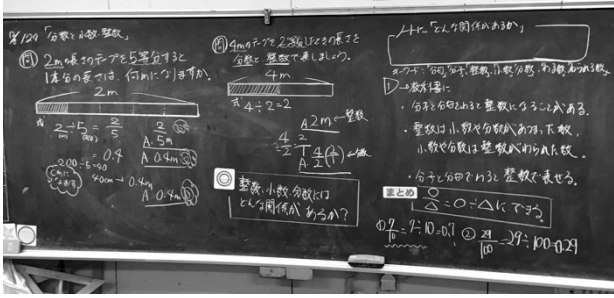 1/29 「分数と小数・整数」
問 2mの長さのテープを5等分すると
1本分の長さは、何mになりますか。
2m
式 2÷5=2/5
2/5m
A.
=0.4
A. 0.4m
200÷5=40
40cm→0.4m
A. 0.4m
cmに
します
問 4mのテープを2等分したときの長さを
分数と整数で表しましょう。
4m
式 4÷2=2
A 2m ←整数
4÷2=4/2
A. 4/2
整数、小数、分数には
どんな関係があるか?
「どんな関係があるか」
キーワード:分母、分子、整数、小数、分数、わる数、わられる数
1→教科書に
・分子と分母でわると整数になることがある。
・整数は小数や分数があつまった数。
小数や分数は整数がわられた数。
・分子と分母でわると整数で表せる。
まとめ
○/△=○÷△にできる。
① 7/10=7÷10=0.7 ② 29/100=29÷100=0.29